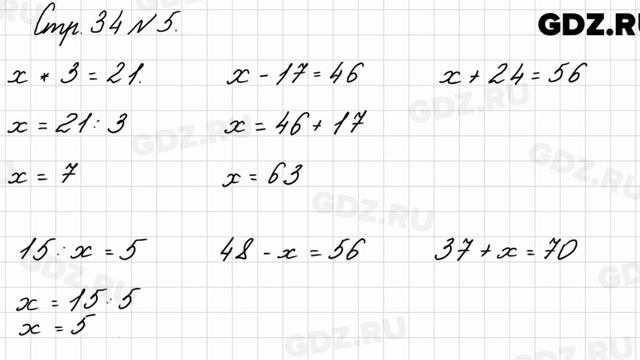 Стр. 34 № 5.
GDZ.RU
x * 3 = 21.
x = 21 : 3
x = 7
x - 17 = 46
x = 46 + 17
x = 63
x + 24 = 56
15 : x = 5
x = 15 : 5
x = 5
48 - x = 56
37 + x = 70
GDZ.RU
GDZ.RU
GDZ.RU
GDZ.RU
GDZ.RU